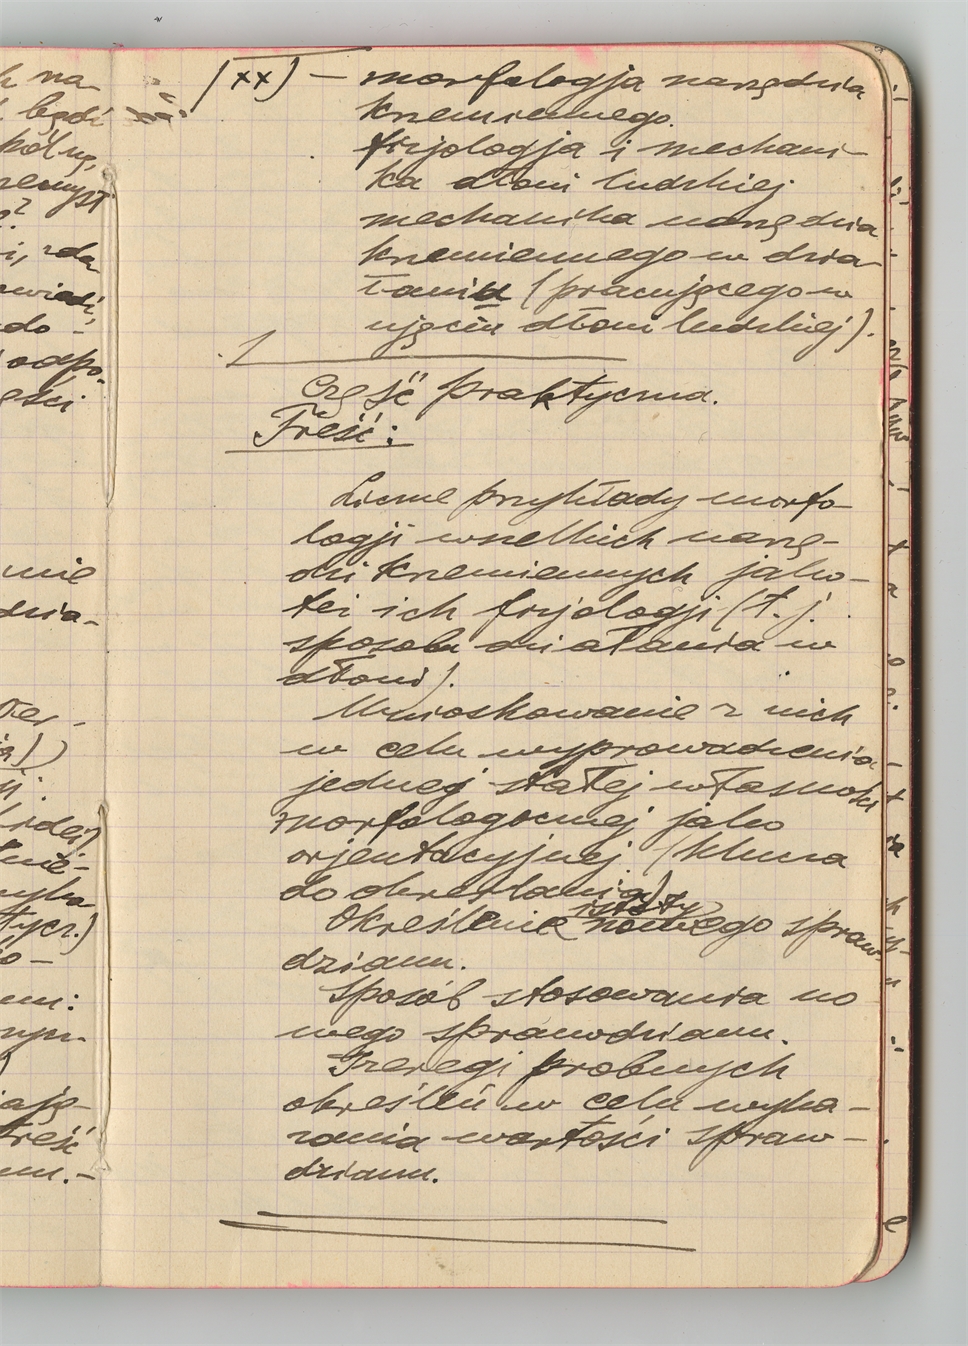 (xx) — morfologja narzędzia
krzemiennego.
fizjologja i mechani-
ka dłoni ludzkiej
mechanika narzędzia
krzemiennego w dzia-
łaniu (pracującego w
ujęciu dłoni ludzkiej).
Część praktyczna.
Treść:
Liczne przykłady morfo-
logji wszelkich narzę-
dzi krzemiennych jako-
też ich fizjologji (t. j.
sposobu działania w
dłoni).
Wnioskowanie z nich
w celu wyprowadzenia
jednej stałej własności
morfologicznej jako
orjentacyjnej (klucza
do określania)
istoty
Określenie nowego spraw-
dzianu.
Sposób stosowania no
wego sprawdzianu.
Szeregi probnych
określeń w celu wyka-
zania wartości spraw-
dzianu.